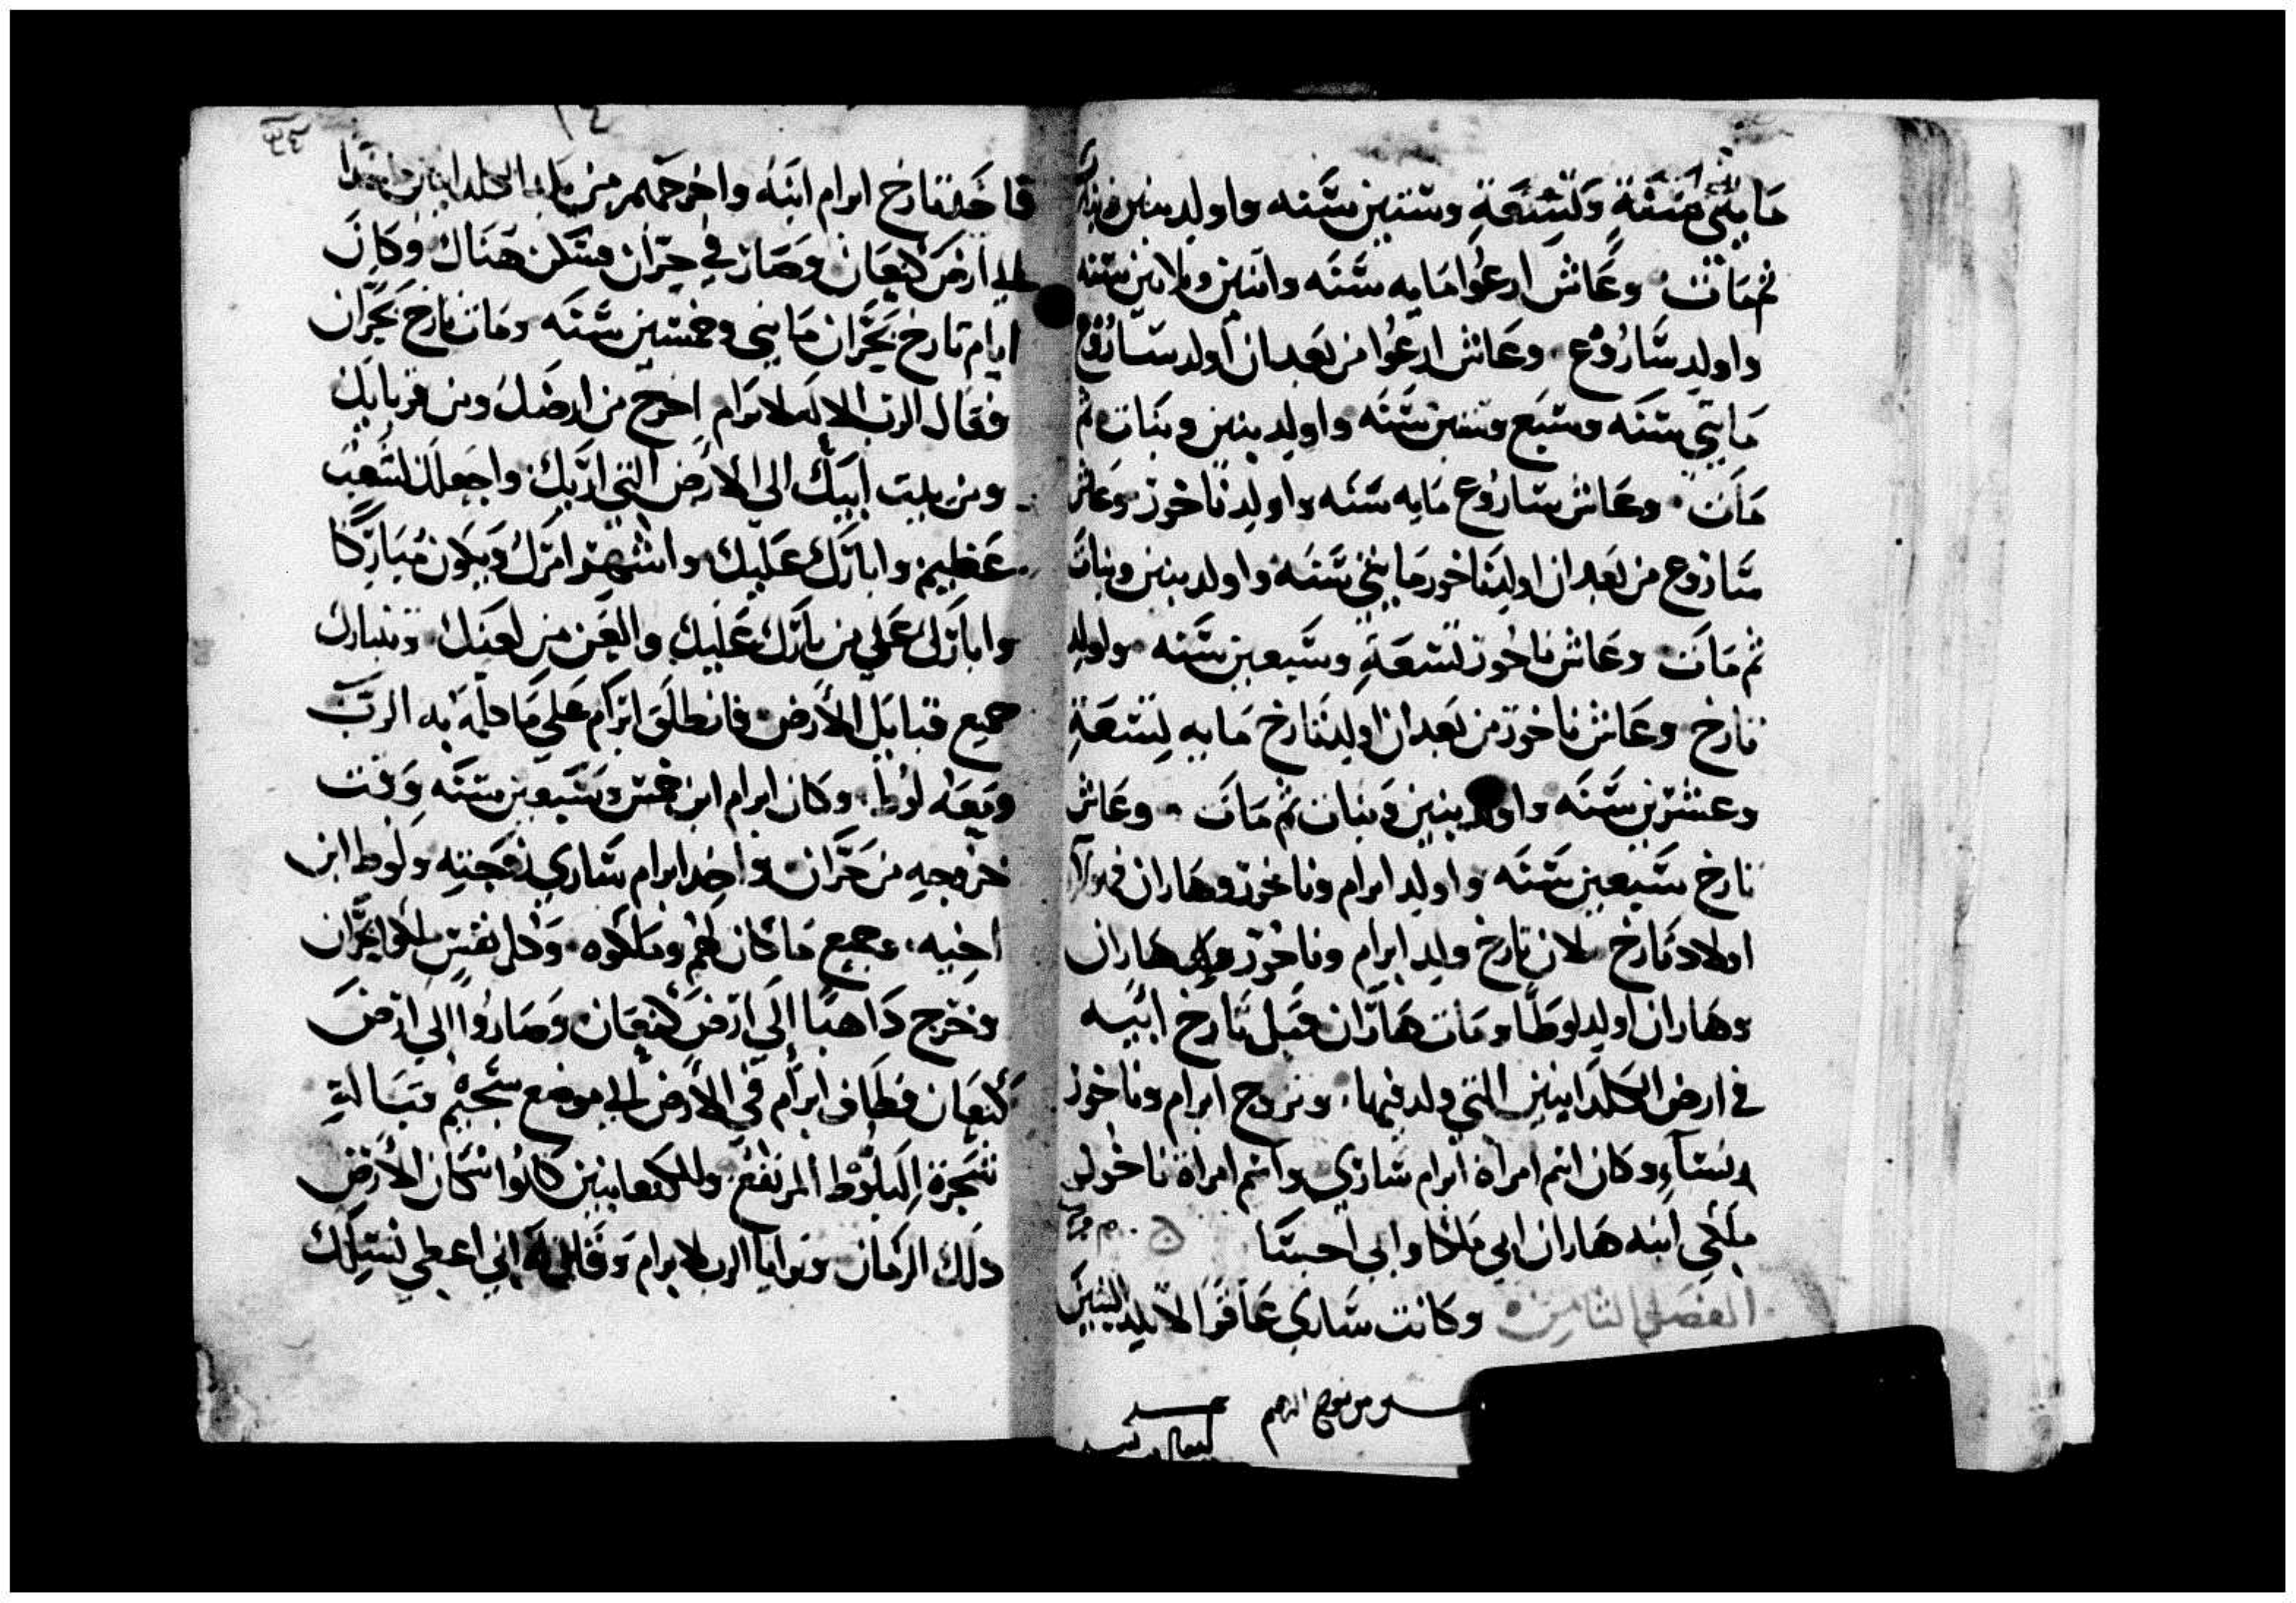 مايتي سنة وتسعة وستين سنه واولد بنين وبنات
ثم مات وعاش ارعوا مايه سنه واتنين وتلاتين سنه
واولد ساروع وعاش ارعوا من بعد ان اولد ساروع
مايتي سنه وسبع وستين سنه واولد بنين وبنات ثم
مات وعاش ساروع مايه سنه واولد ناخور وعاش
ساروع من بعد ان اولد ناخور مايتي سنه واولد بنين وبنات
ثم مات وعاش ناخور تسعة وسبعين سنه واولد
تارخ وعاش ناخور من بعد ان اولد تارخ مايه تسعة
وعشرين سنه واولد بنين وبنات ثم مات وعاش
تارخ سبعين سنه واولد ابرام وناخور وهاران فهولاء
اولاد تارخ لان تارخ ولد ابرام وناخور وهاران
وهاران اولد لوطا ومات هاران قبل تارخ ابيه
في ارض الكلدانيين التي ولد فيها وتزوج ابرام وناخور
نساء وكان اسم امراة ابرام ساري واسم امراة ناخور
ملكي ابنه هاران ابي ملكا وابي احستا
الفصل الثامن وكانت ساري عاقرا لا تلد البنين
فاخد تارخ ابرام ابنه واخرجهم من بلد الكلدانيين
الي ارض كنعان وصار في حران فسكن هناك وكان
ايام تارخ بحران مايتي وخمسين سنه ومات تارخ بحران
فقال الرب الاله لابرام اخرج من ارضك ومن قرباتك
ومن بيت ابيك الي الارض التي اريك واجعلك لشعب
عظيم وابارك عليك واشهر امرك ويكون مباركا
وابارك علي من بارك عليك والعن من لعنك وتتبارك
جميع قبايل الارض فانطلق ابرام علي ما كلمه به الرب
ومعه لوط وكان ابرام ابن خمس وسبعين سنه وقت
خروجه من حران واخد ابرام ساري زوجته ولوط ابن
اخيه وجميع ما كان لهم وملكوه وكل نفس ملكوا بحران
وخرج داهبا الي ارض كنعان وصاروا الي ارض
كنعان فطاف ابرام في الارض الي موضع سجيم قبالة
شجرة البلوط المرتفع والكنعانيين كانوا سكان الارض
دلك الزمان وترايا الرب لابرام وقال له اني اعطي نسلك